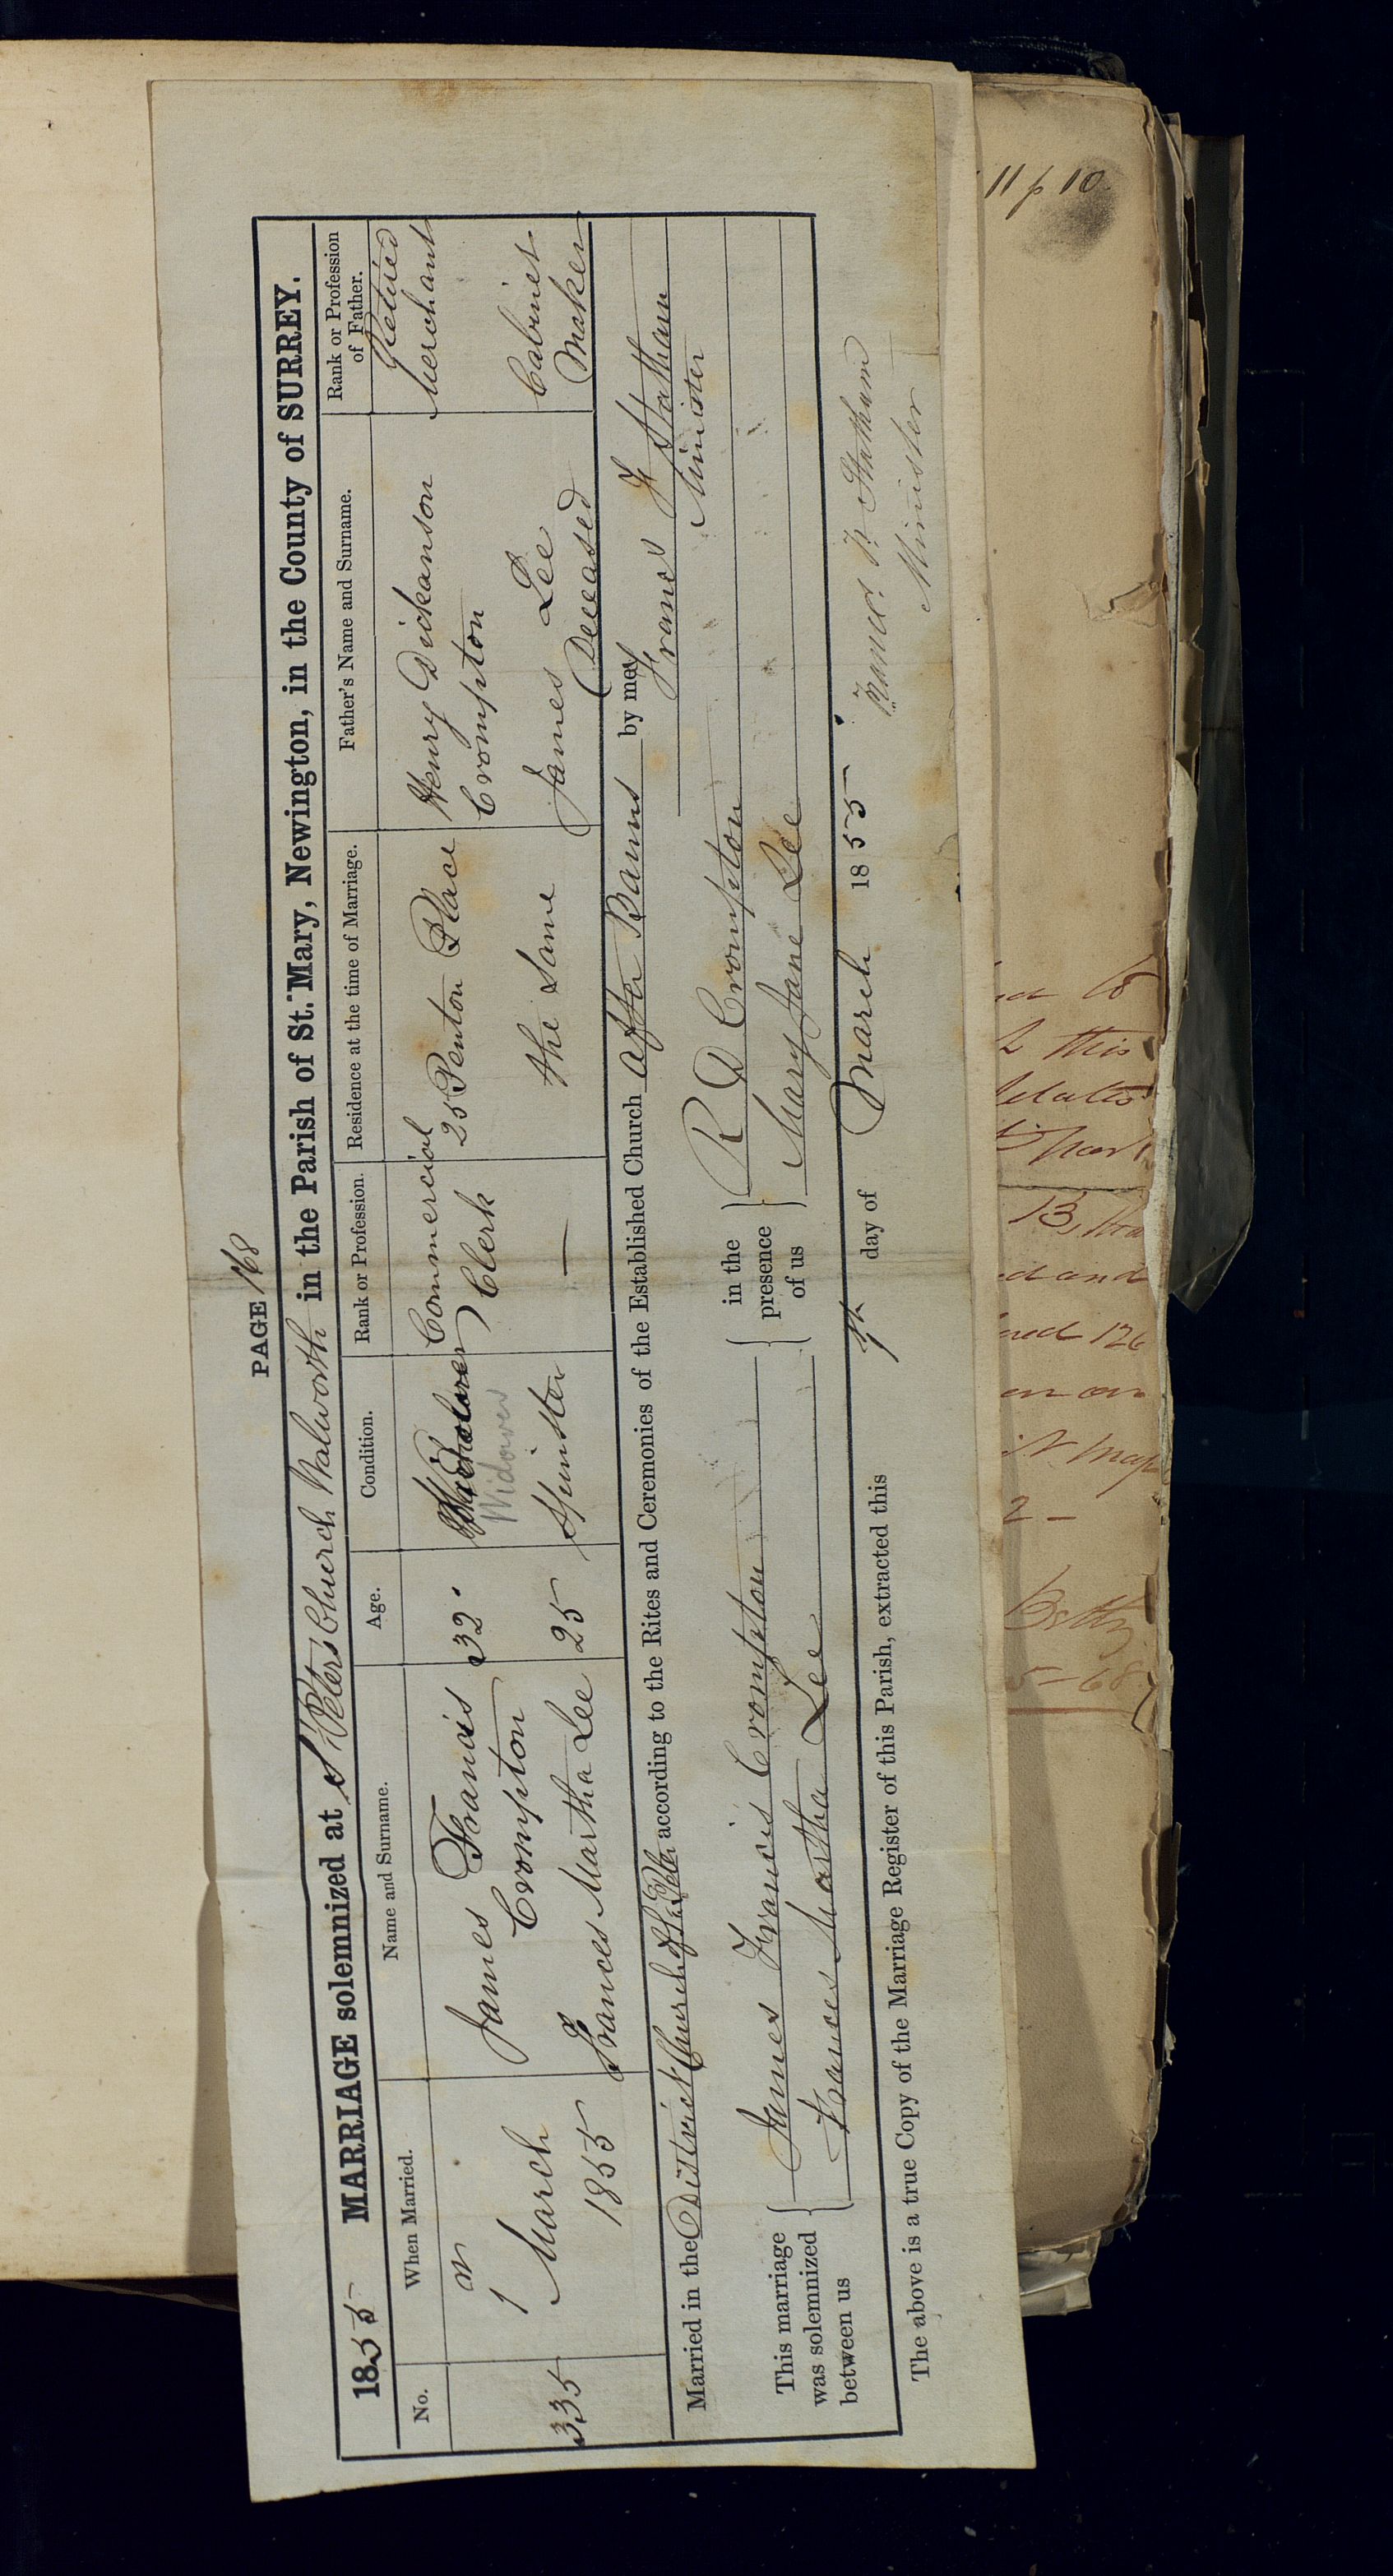 PAGE 168
1855 MARRIAGE solemnized at St Peters Church Walworth in the Parish of St. Mary, Newington, in the County of SURREY.
No. When Married. Name and Surname. Age. Condition. Rank or Profession. Residence at the time of Marriage. Father's Name and Surname. Rank or Profession of Father.
335 March 1855 James Francis Crompton 32 Widower Commercial Clerk 25 Penton Place Henry Dickanson Crompton Retired Merchant
Frances Martha Lee 25 Spinster — the Same James Lee Deceased Cabinet Maker
Married in the District Church of St. Peter according to the Rites and Ceremonies of the Established Church after Banns by me, Francs F Statham
Minister
This marriage was solemnized between us { James Francis Crompton } in the presence of us { R D Crompton
Frances Martha Lee Mary Jane Lee
The above is a true Copy of the Marriage Register of this Parish, extracted this 7th day of March 1855
Francs F. Statham
Minister
11 p 10
this
13,
and
126
on
2 —
Betty
5-68